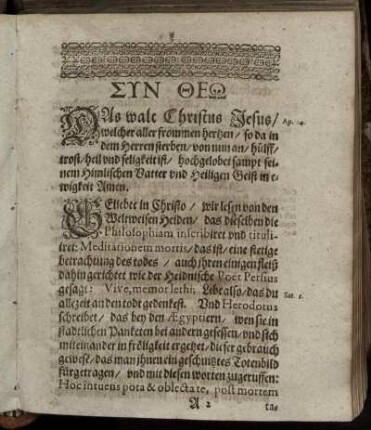 ΣΥΝ ΘΕΩ
DAs walt Christus Jesus /
welcher aller frommen hertzen / so da in
dem Herren sterben / von nun an / hülff /
trost / heil vnd seligkeit ist / hochgelobet sampt sei-
nem Himlischen Vatter vnd Heiligen Geist in e-
wigkeit Amen.
GEliebte in Christo / wir lesen von den
Weltweisen Heiden / das dieselben die
Philosophiam inscribiret vnd tituli-
ret: Meditationem mortis, das ist / eine stetige
betrachtung des todes / auch jhren einigen fleiß
dahin gerichtet wie der Heidnische Poet Persius
gesagt: Vive, memor lethi, Lebe also / das du
allezeit an den todt gedenkest. Vnd Herodotus
schreibet / das bey den Ægyptiern / wen sie in
stadtlichen Panketen bei andern gesessen / vnd sich
miteinander in frőligkeit ergetzet / dieser gebrauch
gewest / das man jhnen ein geschnitztes Totenbild
fürgetragen / vnd mit diesen worten zugeruffen:
Hoc intuens pota & oblectate, post mortem
A 2 ta-
Sat. 5.